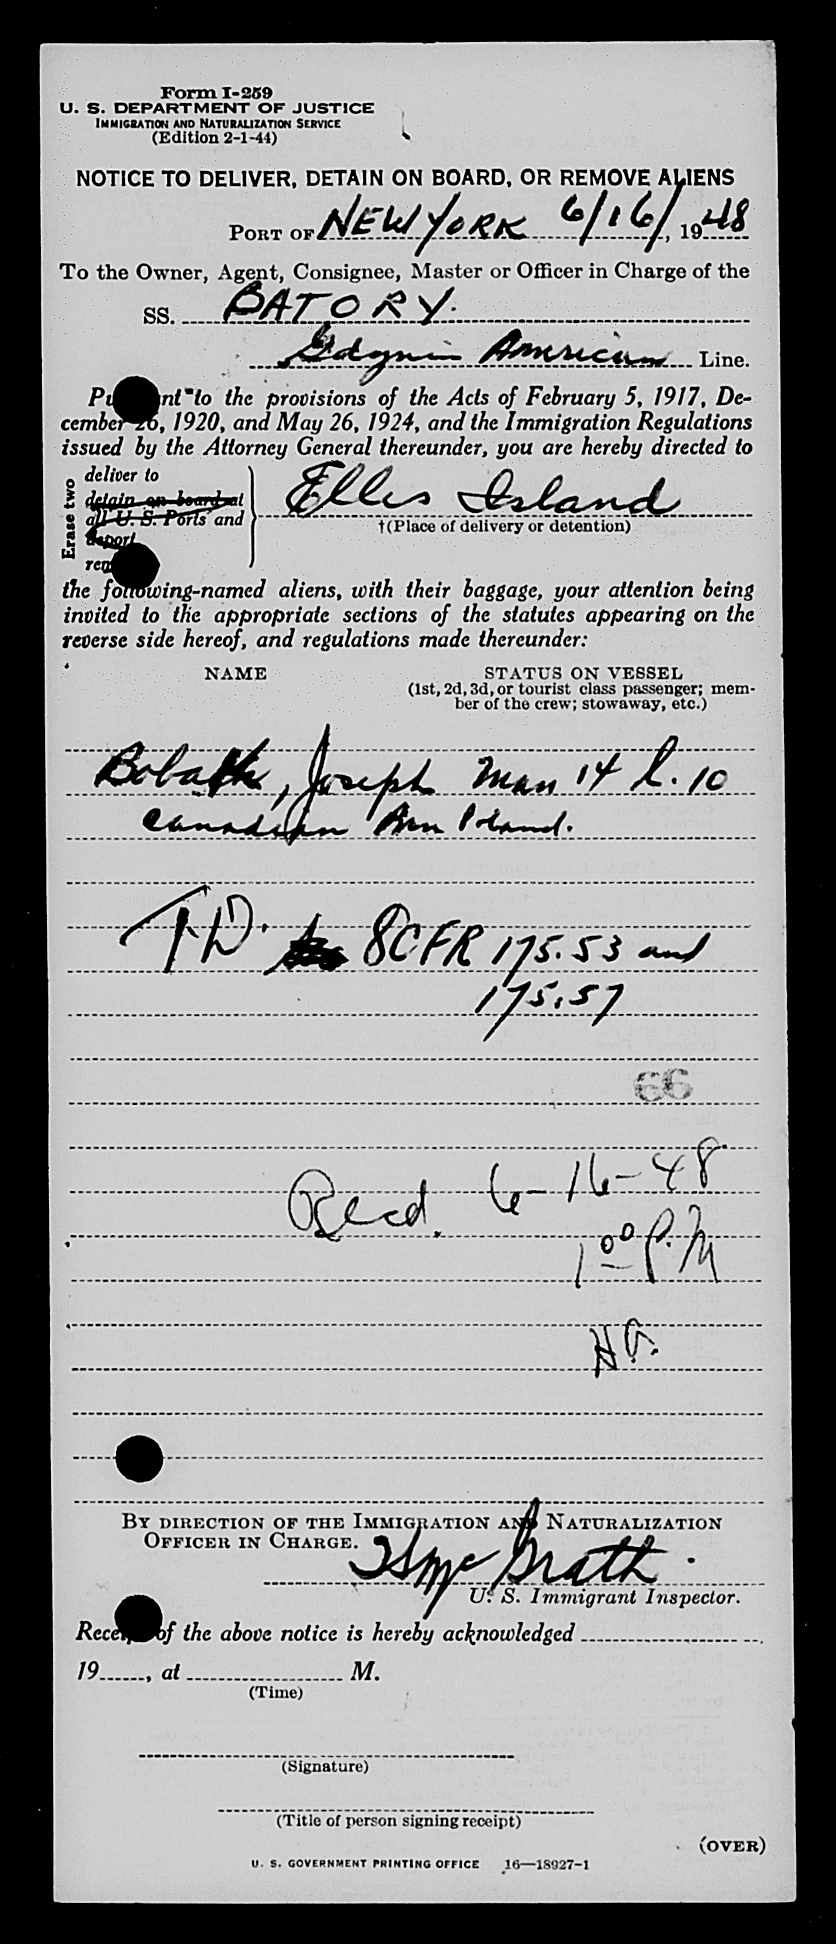 Form I-259
U. S. DEPARTMENT OF JUSTICE
IMMIGRATION AND NATURALIZATION SERVICE
(Edition 2-1-44)
NOTICE TO DELIVER, DETAIN ON BOARD, OR REMOVE ALIENS
PORT OF NEW YORK 6/16/, 1948
To the Owner, Agent, Consignee, Master or Officer in Charge of the
SS. BATORY.
Gdynia American Line.
Pu nt to the provisions of the Acts of February 5, 1917, De-
cember 26, 1920, and May 26, 1924, and the Immigration Regulations
issued by the Attorney General thereunder, you are hereby directed to
Erase two
deliver to
detain on board at
all U. S. Ports and
deport
rem
Ellis Island
†(Place of delivery or detention)
the following-named aliens, with their baggage, your attention being
invited to the appropriate sections of the statutes appearing on the
reverse side hereof, and regulations made thereunder:
NAME
STATUS ON VESSEL
(1st, 2d, 3d, or tourist class passenger; mem-
ber of the crew; stowaway, etc.)
Joseph Man 14 l. 10
Canadian Poland.
T.D. 8CFR 175.53 and
175.57
66
Recd. 6-16-48
1 00 P.M
By direction of the Immigration and Naturalization
Officer in Charge.
McGrath.
U. S. Immigrant Inspector.
Recei of the above notice is hereby acknowledged
19 , at M.
(Time)
(Signature)
(Title of person signing receipt)
(OVER)
U. S. GOVERNMENT PRINTING OFFICE 16—18927-1